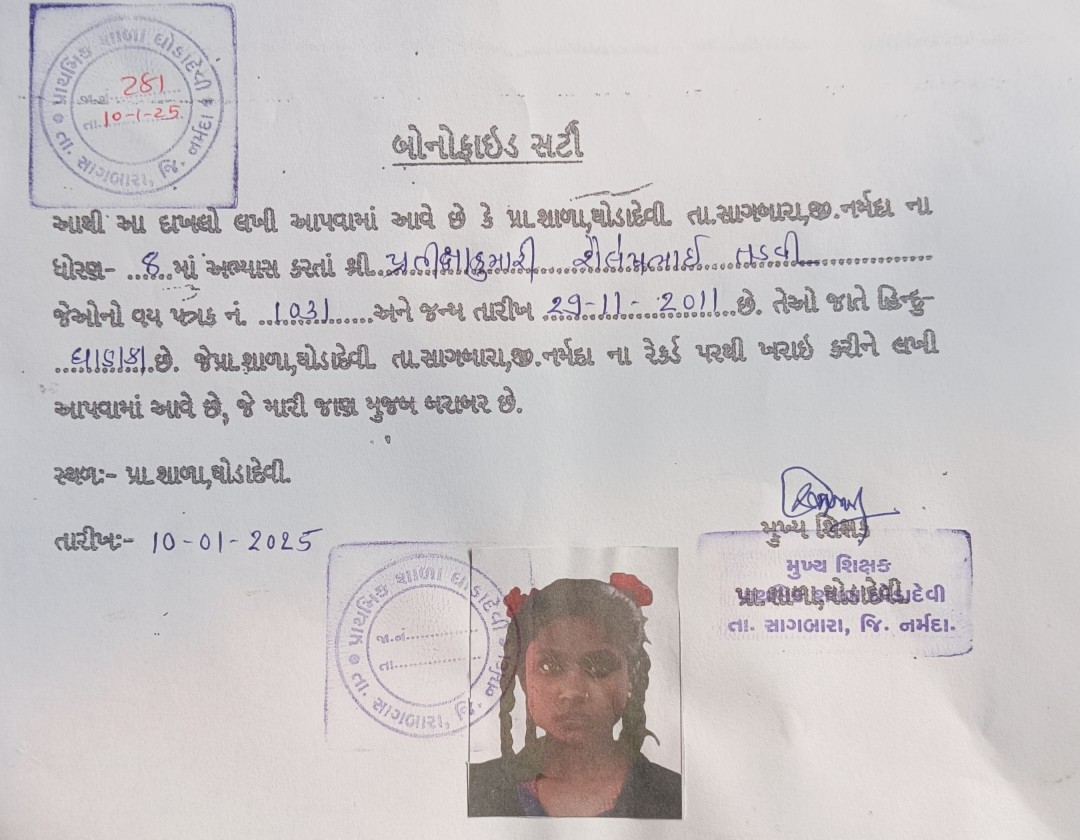 પ્રાથમિક શાળા ઘોડાદેવી
જા.નં. 281
તા. 10-1-25
તા. સાગબારા, જિ. નર્મદા
બોનોફાઇડ સર્ટી
આથી આ દાખલો લખી આપવામાં આવે છે કે પ્રા.શાળા,ઘોડાદેવી તા.સાગબારા,જી.નર્મદા ના
ધોરણ- ..8..માં અભ્યાસ કરતાં શ્રી..પ્રતીક્ષાકુમારી શૈલેષભાઈ તડવી
જેઓનો વય પત્રક નં ..1031......અને જન્મ તારીખ 29-11-2011.છે. તેઓ જાતે હિન્દુ-
...ધાણકા.છે. જેપ્રા.શાળા,ઘોડાદેવી તા.સાગબારા,જી.નર્મદા ના રેકર્ડ પરથી ખરાઇ કરીને લખી
આપવામાં આવે છે, જે મારી જાણ મુજબ બરાબર છે.
સ્થળઃ- પ્રા.શાળા,ઘોડાદેવી.
તારીખઃ- 10-01-2025
મુખ્ય શિક્ષક
મુખ્ય શિક્ષક
પ્રા.શાળા,ઘોડાદેવી
તા. સાગબારા, જિ. નર્મદા.
પ્રાથમિક શાળા ઘોડાદેવી
જા.નં.
તા.
તા. સાગબારા, જિ. નર્મદા